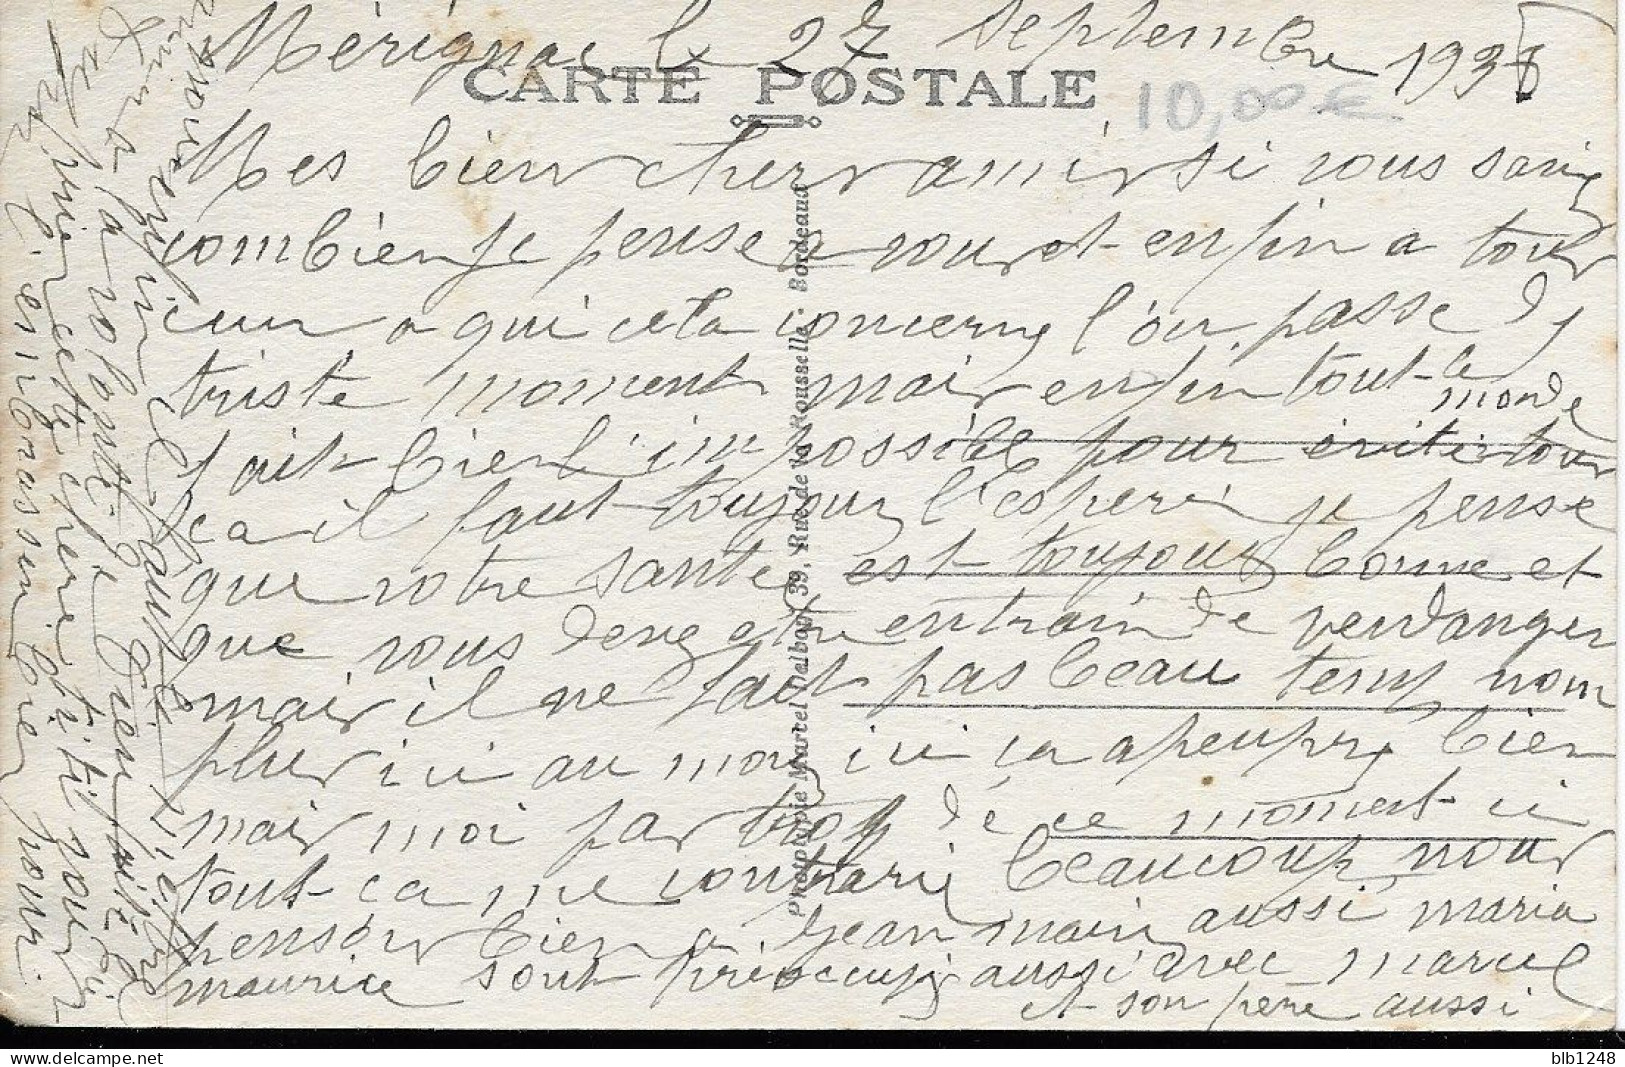 Mérignac le 27 Septembre 1938
CARTE POSTALE
10,00 €
Mes bien chers amis si vous saviez
combien je pense a vous et enfin a tous
ceux a qui cela concerne l'on passe de
triste moment mais enfin tout le
monde
fait bien l'impossible pour éviter tour
ca il faut toujour l'esperer je pense
que votre santé est toujours bonne et
que vous devez etre entrain de vendanger
mais il ne fait pas beau temp non
plus ici au moi ici ca a peu pre bien
mais moi par trop dé ce moment ci
tout ca me contrarie beaucoup nous
pensons bien a Jean mais aussi maria
maurice sont préoccupé aussi avec marcel
et son père aussi
Phototypie Marcel Delboy, 39, Rue de la Rousselle - Bordeaux
enfin il faut
a sa volonté je
cette espere petit pour
embrassen bien pour